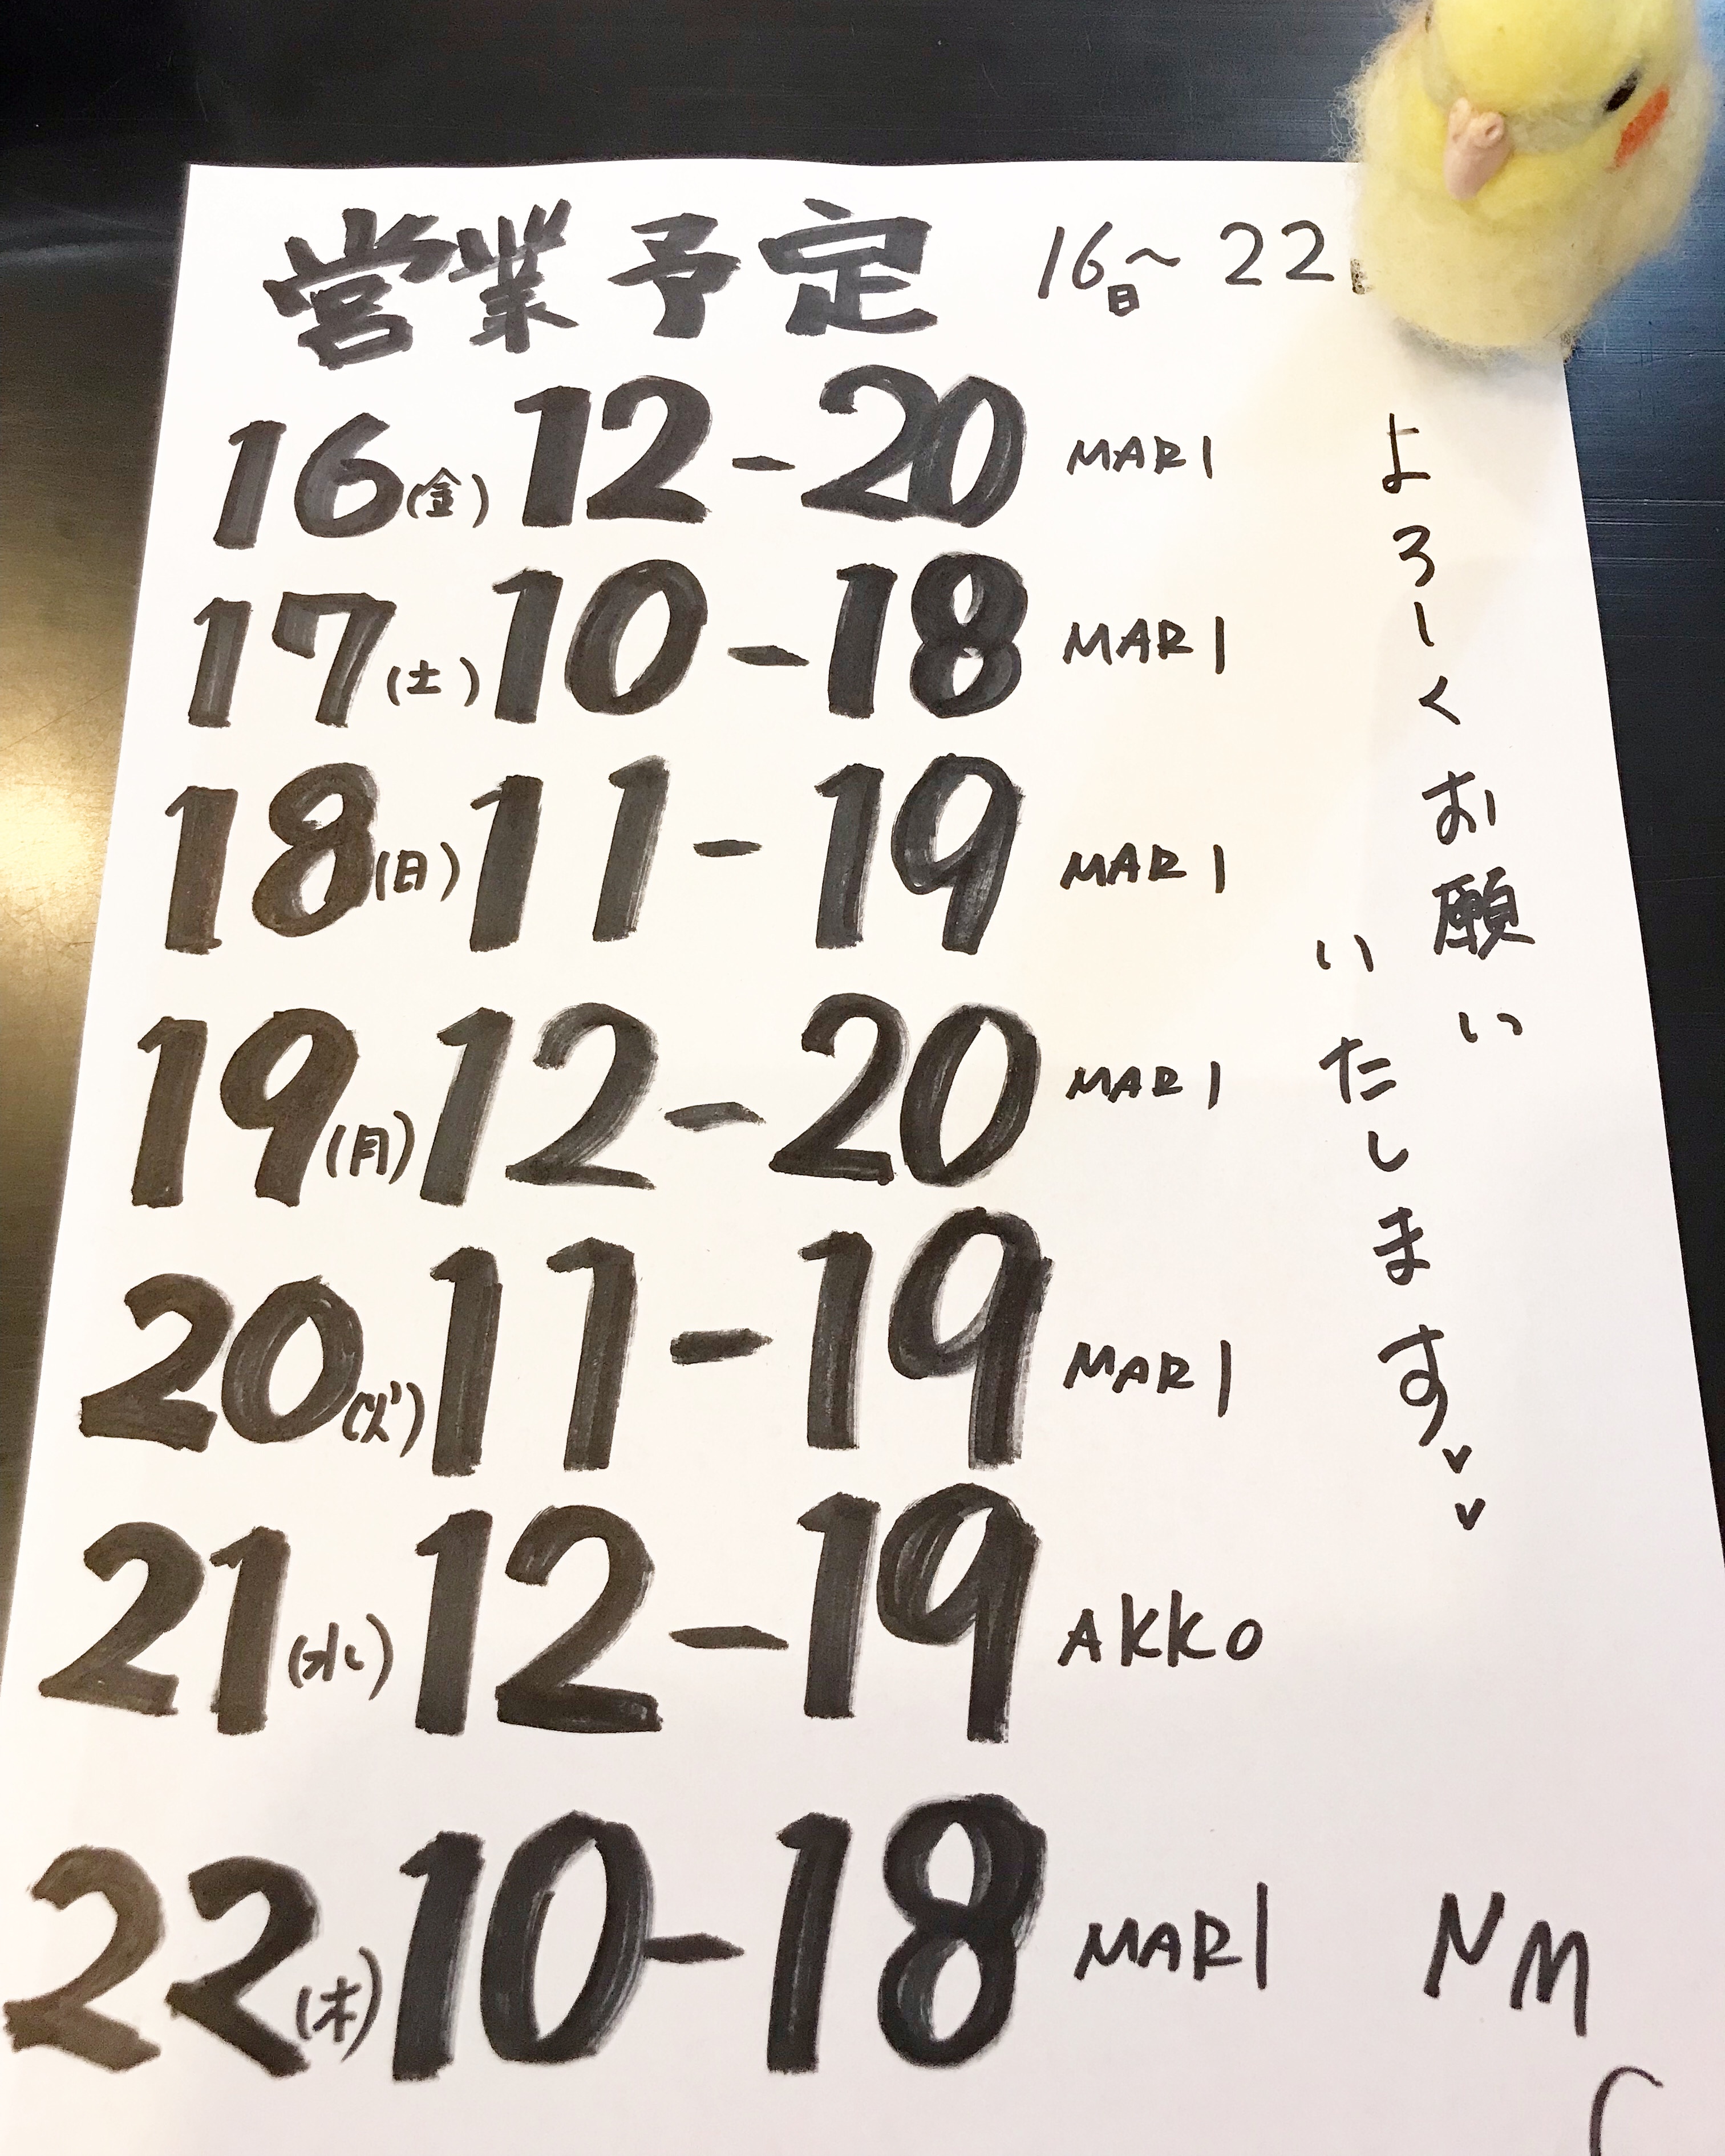 営業予定 16日〜22
16(金) 12-20 MARI
17(土) 10-18 MARI
18(日) 11-19 MARI
19(月) 12-20 MARI
20(火) 11-19 MARI
21(水) 12-19 AKKO
22(木) 10-18 MARI
よろしくお願い
いたします
NM